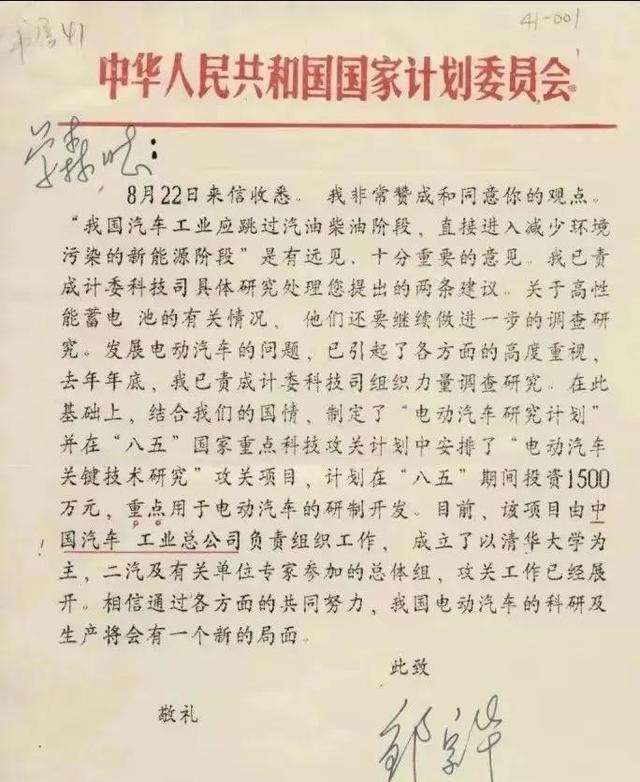 41-001
中华人民共和国国家计划委员会
学森同志：
8月22日来信收悉。我非常赞成和同意你的观点。
“我国汽车工业应跳过汽油柴油阶段，直接进入减少环境
污染的新能源阶段”是有远见、十分重要的意见。我已责
成计委科技司具体研究处理您提出的两条建议。关于高性
能蓄电 池的有关情况， 他们还要继续做进一步的调查研
究。发展电动汽车的问题，已引起了各方面的高度重视，
去年年底，我已责成计委科技司组织力量调查研究。在此
基础上，结合我们的国情，制定了“电动汽车研究计划”
并在“八五”国家重点科技攻关计划中安排了“电动汽车
关键技术研究”攻关项目，计划在“八五”期间投资1500
万元，重点用于电动汽车的研制开发。目前，该项目由中
国汽车 工业总公司负责组织工作， 成立了以清华大学为
主，二汽及有关单位专家参加的总体组，攻关工作已经展
开。相信通过各方面的共同努力，我国电动汽车的科研及
生产将会有一个新的局面。
此致
敬礼
邹家华